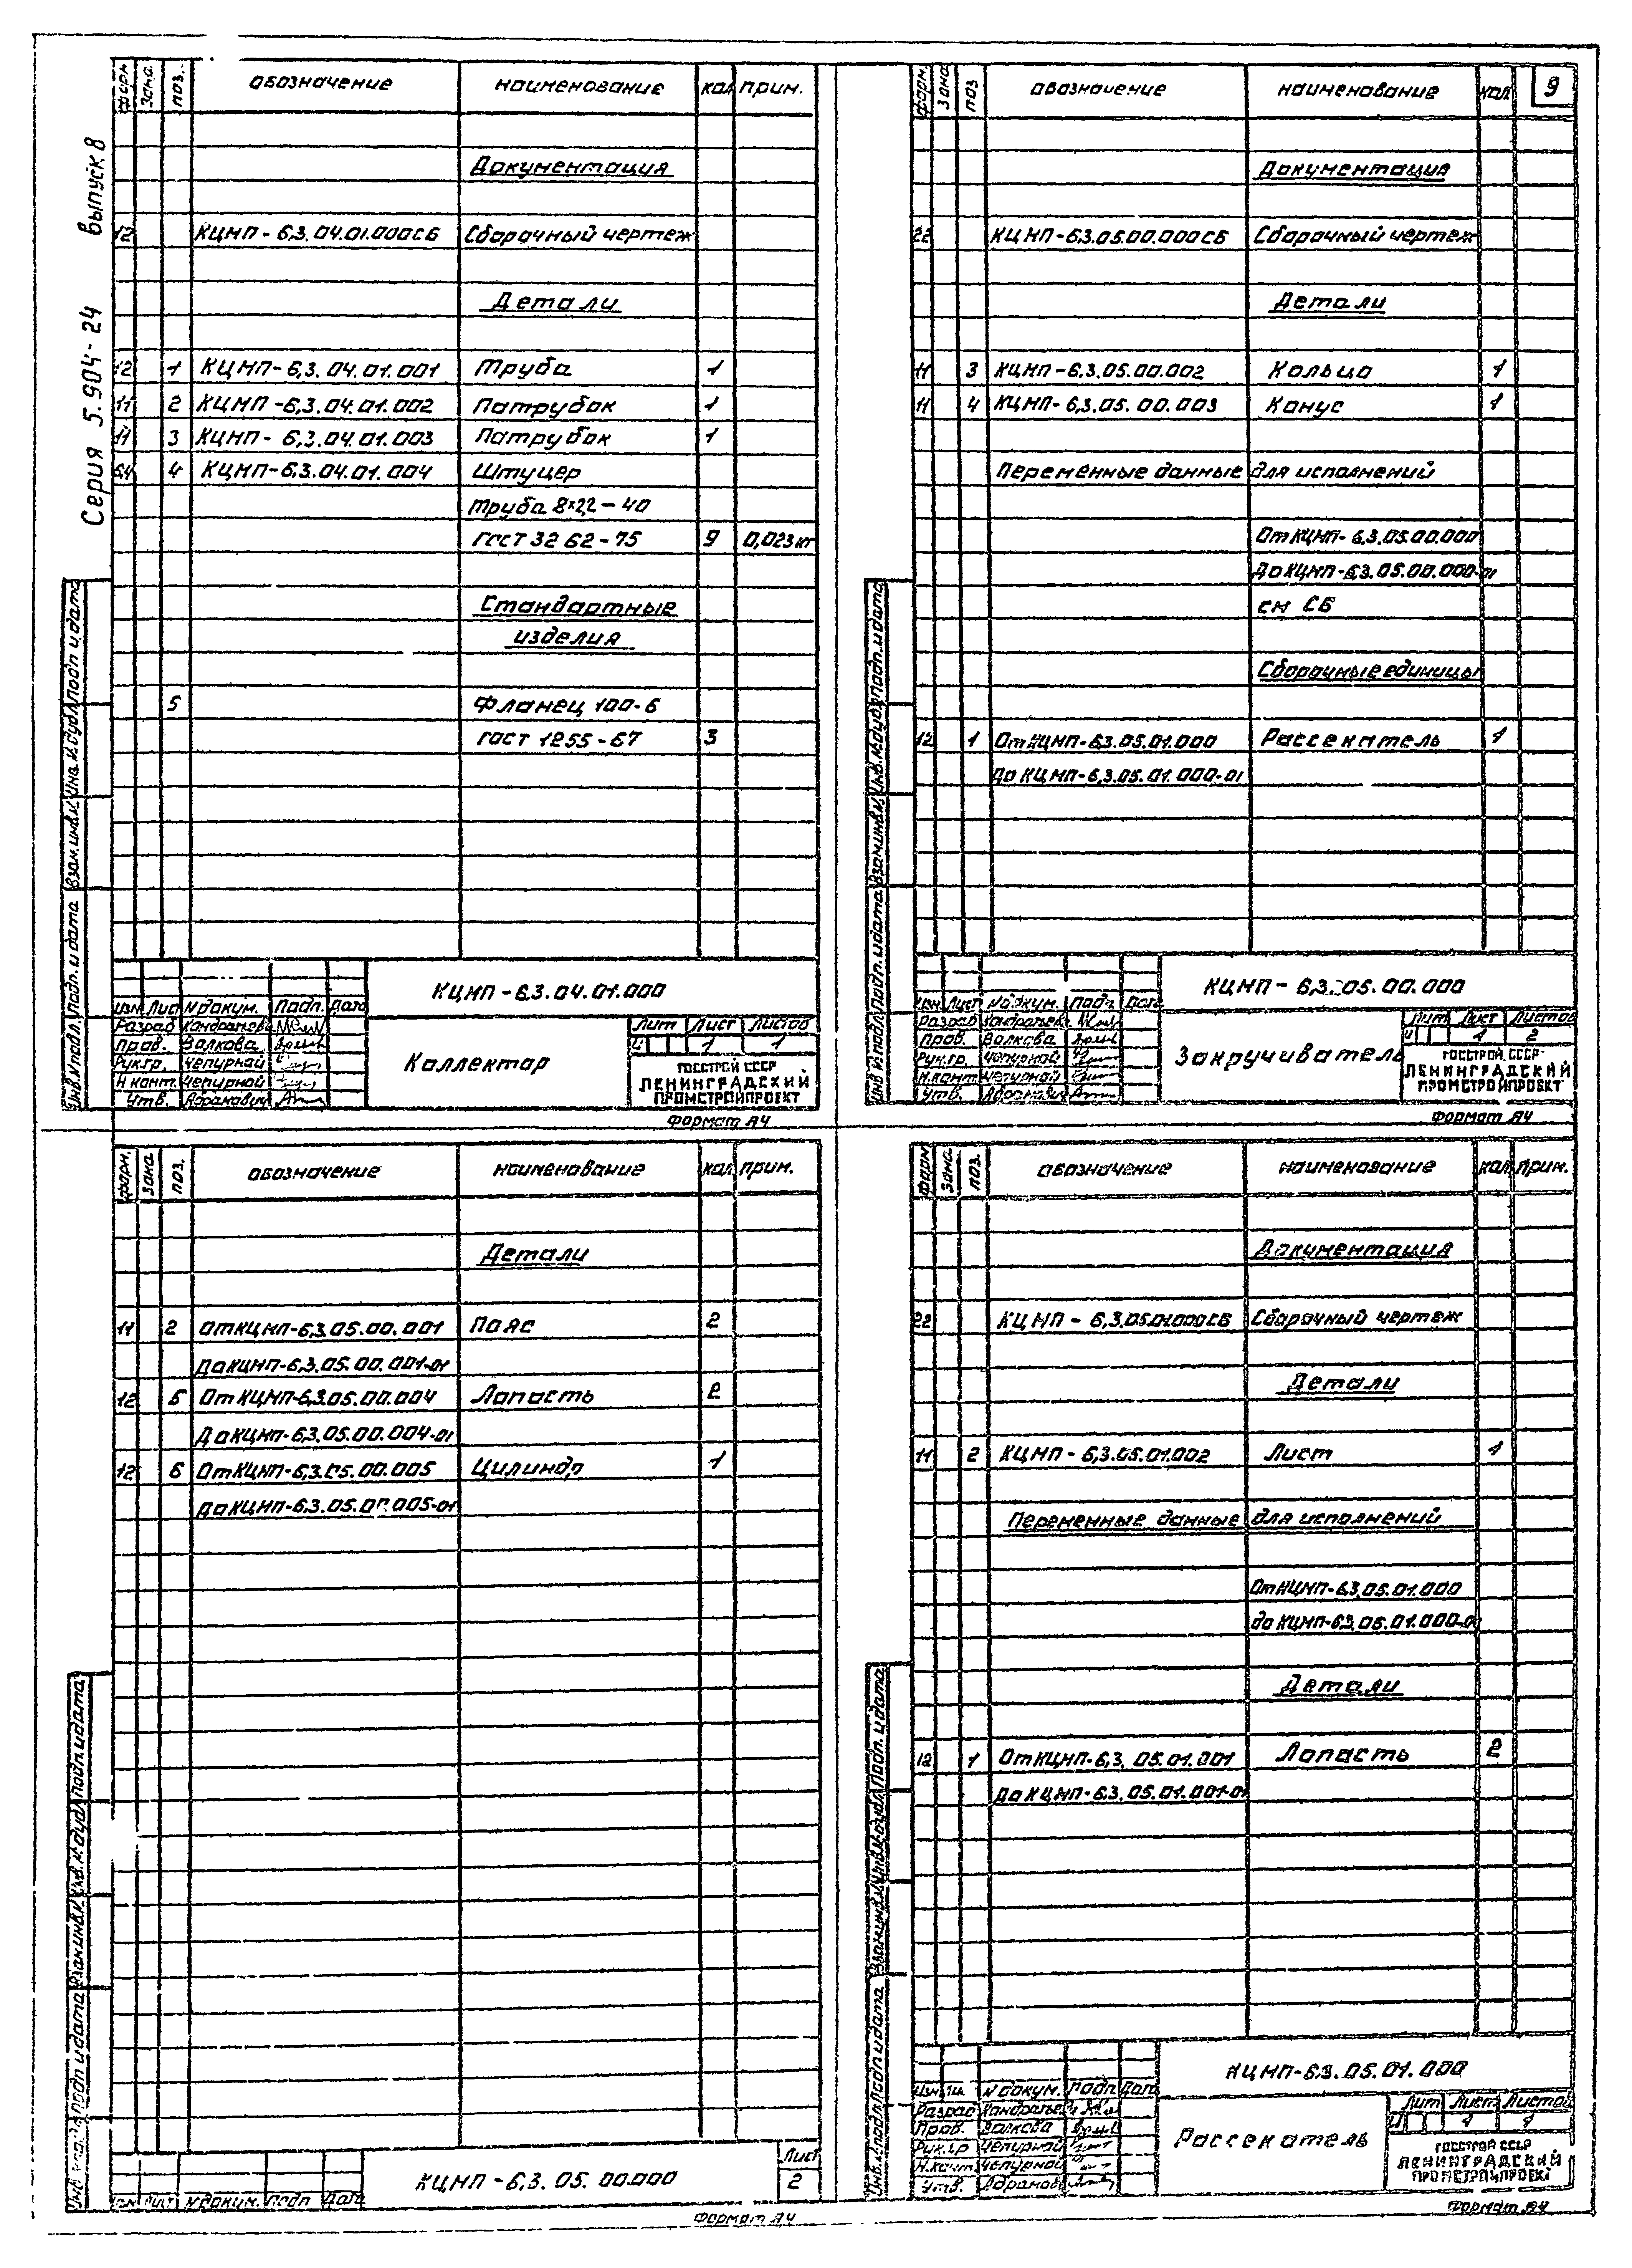 Серия 5.904-24 выпуск 8
9
форм. зона. поз. обозначение наименование кол прим.
Документация
12 КЦМП-6,3.04.01.000СБ Сборочный чертеж
Детали
12 1 КЦМП-6,3.04.01.001 Труба 1
11 2 КЦМП-6,3.04.01.002 Патрубок 1
11 3 КЦМП-6,3.04.01.003 Патрубок 1
БЧ 4 КЦМП-6,3.04.01.004 Штуцер
Труба 8×2,2-40
ГОСТ 3262-75 9 0,023кг
Стандартные
изделия
5 Фланец 100-6
ГОСТ 1255-67 3
Инв.№подл. подп. и дата взам.инв.№ инв.№дубл подп. и дата
КЦМП-6,3.04.01.000
изм Лист № докум. Подп. Дата
Разраб Кондратьева
Пров. Волкова
Рук.гр. Чепурной
Н.конт. Чепурной
Утв. Абрамович
Коллектор
Лит Лист Листов
И 1 1
ГОССТРОЙ СССР
ЛЕНИНГРАДСКИЙ
ПРОМСТРОЙПРОЕКТ
Формат А4
форм. зона поз обозначение наименование кол
Документация
22 КЦМП-6,3.05.00.000СБ Сборочный чертеж
Детали
11 3 КЦМП-6,3.05.00.002 Кольцо 1
11 4 КЦМП-6,3.05.00.003 Конус 1
Переменные данные для исполнений
От КЦМП-6,3.05.00.000
До КЦМП-6,3.05.00.000-01
см СБ
Сборочные единицы
12 1 От КЦМП-6,3.05.01.000 Рассекатель 1
До КЦМП-6,3.05.01.000-01
Инв.№подл. подп. и дата взам.инв.№ инв.№дубл подп. и дата
КЦМП-6,3.05.00.000
изм. Лист № докум. Подп. Дата
Разраб Кондратьева
Пров. Волкова
Рук.гр. Чепурной
Н.конт. Чепурной
Утв. Абрамович
Закручиватель
Лит Лист Листов
И 1 2
ГОССТРОЙ СССР
ЛЕНИНГРАДСКИЙ
ПРОМСТРОЙПРОЕКТ
Формат А4
форм. зона поз. обозначение наименование кол прим.
Детали
11 2 От КЦМП-6,3.05.00.001 Пояс 2
До КЦМП-6,3.05.00.001-01
12 5 От КЦМП-6,3.05.00.004 Лопасть 2
До КЦМП-6,3.05.00.004-01
12 6 От КЦМП-6,3.05.00.005 Цилиндр 1
До КЦМП-6,3.05.00.005-01
подп и дата Взам.инв.№ инв.№дубл подп. и дата
изм Лист № докум. подп Дата
КЦМП-6,3.05.00.000
Лист
2
Формат А4
форм зона. поз. обозначение наименование кол прим.
Документация
22 КЦМП-6,3.05.01.000СБ Сборочный чертеж
Детали
11 2 КЦМП-6,3.05.01.002 Лист 1
Переменные данные для исполнений
От КЦМП-6,3.05.01.000
до КЦМП-6,3.05.01.000-01
Детали
12 1 От КЦМП-6,3.05.01.001 Лопасть 2
До КЦМП-6,3.05.01.001-01
Инв.№подл подп и дата Взам.инв.№ инв.№дубл Подп. и дата
КЦМП-6,3.05.01.000
Изм. Ли № докум. Подп. Дата
Разраб Кондратьева
Пров. Волкова
Рук.гр Чепурной
Н.конт. Чепурной
Утв. Абрамович
Рассекатель
Лит Лист Листов
И 1 1
ГОССТРОЙ СССР
ЛЕНИНГРАДСКИЙ
ПРОМСТРОЙПРОЕКТ
Формат А4